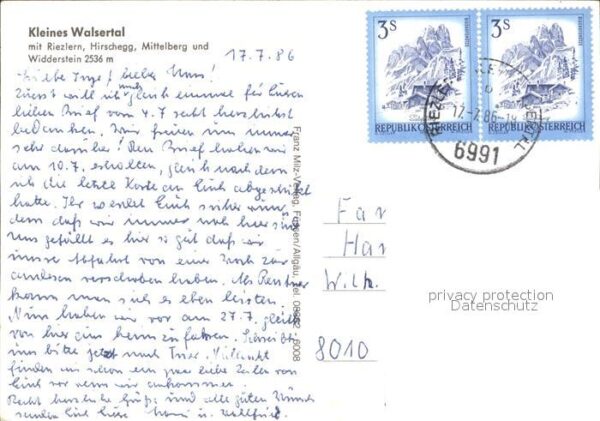 Kleines Walsertal
mit Riezlern, Hirschegg, Mittelberg und
Widderstein 2536 m
17.7.86
Liebe Inge! lieber Uns!
Zuerst will ich euch gleich einmal für Euren
lieben Brief vom 4.7 recht herzlichst
bedanken. Wir freuen uns immer
sehr darüber! Den Brief haben wir
am 10.7. erhalten, gleich nachdem
ich die letzte Karte an Euch abgeschickt
hatte. Ihr werdet Euch sicher wundern,
daß wir immer noch hier sind
Uns gefällt es hier so gut daß wir
unsere Abfahrt von einer Woche zur
anderen verschoben haben. Als Rentner
kann man sich es eben leisten.
Nun haben wir vor am 27.7. gleich
von hier aus heim zu fahren. Schreibt
uns bitte jetzt nach Trier. Vielleicht
finden wir schon ein paar liebe Zeilen von
Euch vor wenn wir ankommen.
Recht herzliche Grüße und alle guten Wünsche
senden Euch Eure u. Wallfried
Franz Milz-Verlag, Füssen/Allgäu, Tel. 08362 - 6008
3S
REPUBLIK ÖSTERREICH
3S
REPUBLIK ÖSTERREICH
17.-7.86-18
6991
Fa
Ha
Wilh.
8010
privacy protection
Datenschutz